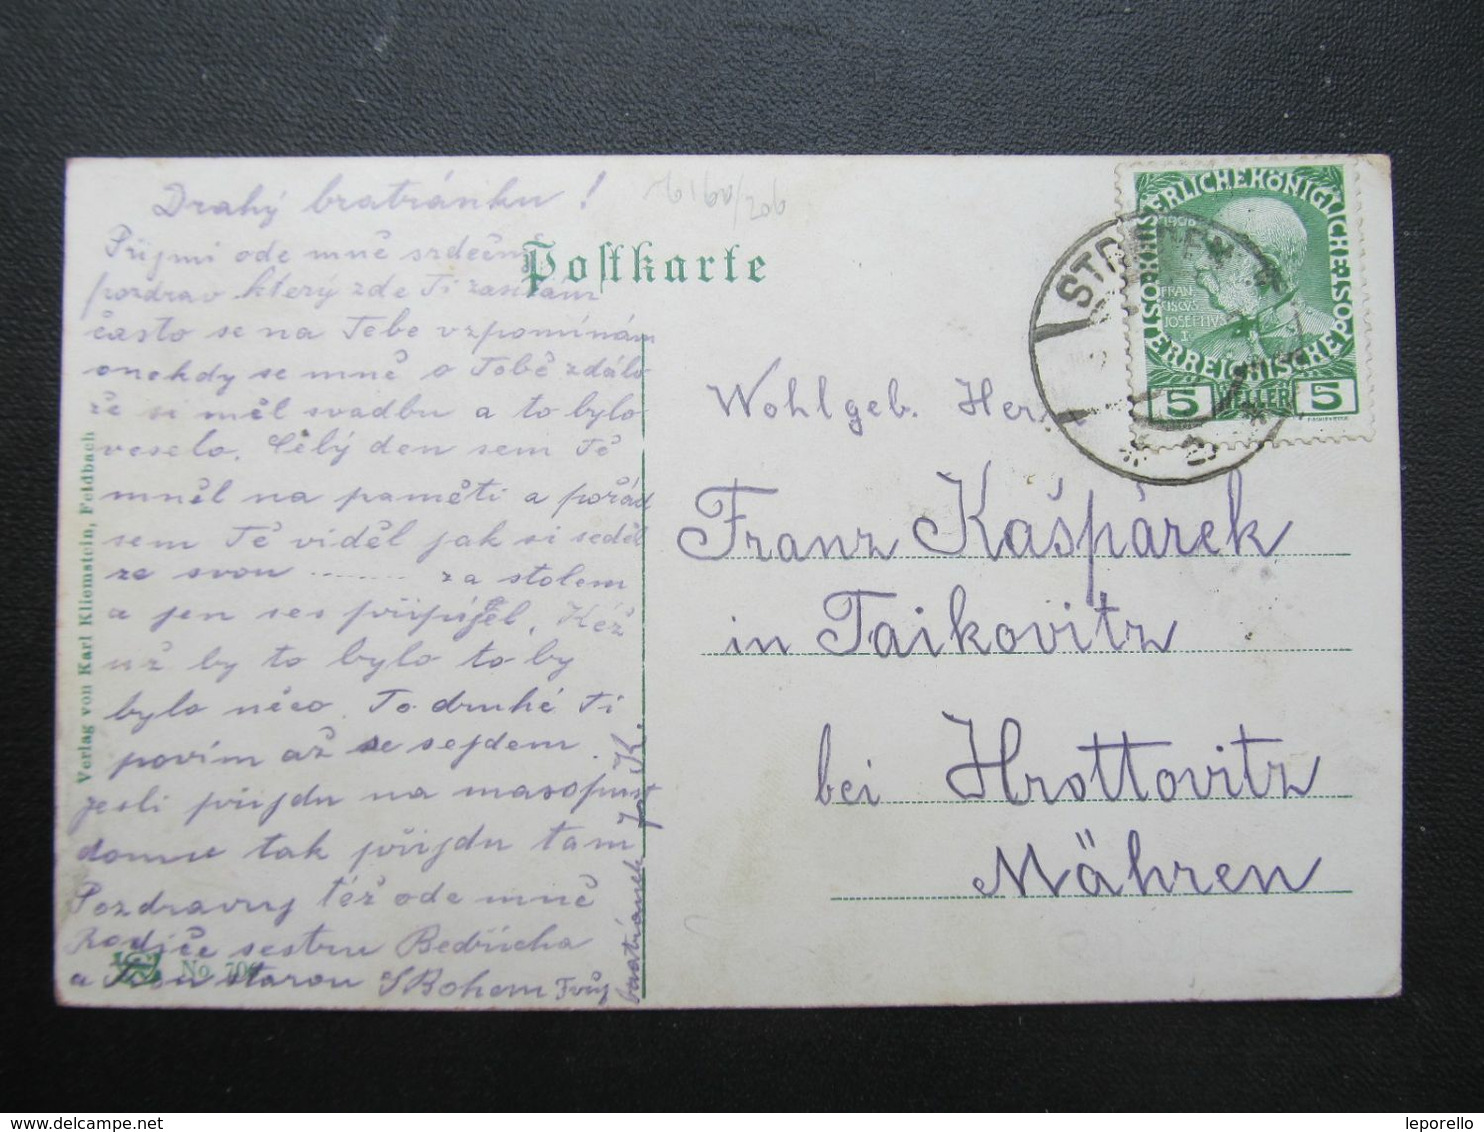 Drahý bratránku!
Přijmi ode mně srdečný
pozdrav který zde Ti zasílám
často se na Tebe vzpomínám
onekdy se mně o Tobě zdálo
že si měl svadbu a to bylo
veselo. Celý den sem Tě
mněl na paměti a pořád
sem Tě viděl jak si seděl
ze svou ........ za stolem
a jen ses připíjel. Kéž
už by to bylo to by
bylo něco. To druhé Ti
povím až se sejdem.
jesli přijdu na masopust
domu tak přijdu tam
Pozdravuj též ode mně
Rodiče sestru Bedřicha
a starou S Bohem Tvůj
bratránek K.
Postkarte
Verlag von Karl Kliemstein, Feldbach
No. 706
6160/206
STR
KAISERLICHE KÖNIGLICHE ÖSTERREICHISCHE POST
1908
FRAN
CISCVS
JOSEPHVS
I
5 HELLER 5
Wohlgeb. Herr
Franz Kašpárek
in Taikovitz
bei Hrottovitz
Mähren
leporello